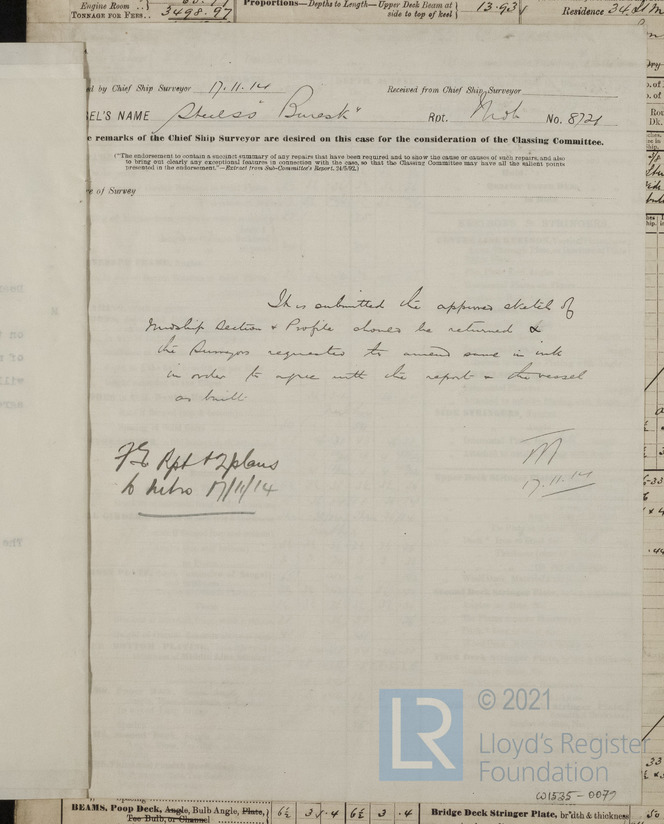 Engine Room ..
TONNAGE FOR FEES.. 3498.97
Proportions—Depths to Length—Upper Deck Beam at side to top of keel 13.93
Residence 34
ed by Chief Ship Surveyor 17.11.14 Received from Chief Ship Surveyor
SEL'S NAME "Buresk" Rpt. No. 8721
e remarks of the Chief Ship Surveyor are desired on this case for the consideration of the Classing Committee.
("The endorsement to contain a succinct summary of any repairs that have been required and to show the cause or causes of such repairs, and also
to bring out clearly any exceptional features in connection with the case, so that the Classing Committee may have all the salient points
presented in the endorsement."—Extract from Sub-Committee's Report, 24/5/92.)
re of Survey
It is submitted the approved sketch of
Midship Section & Profile should be returned &
the Surveyors requested to amend same in ink
in order to agree with the report & the vessel
as built
Rpt & 2 plans
to 17/11/14
17.11.14
LR © 2021
Lloyd's Register
Foundation
W1535-0079
BEAMS, Poop Deck, Angle, Bulb Angle, Plate, Tee Bulb, or Channel 6½ 3 .4 6½ 3 .4
Bridge Deck Stringer Plate, br'dth & thickness